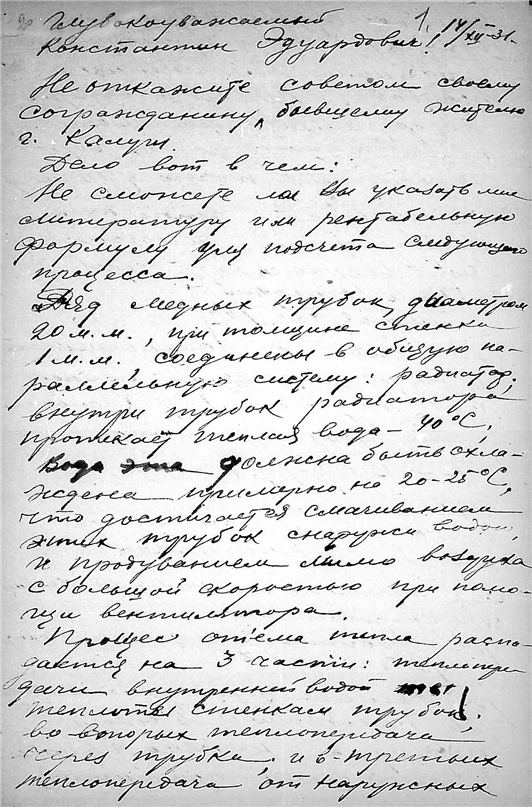 Глубокоуважаемый 1.
Константин Эдуардович! 14/XII-31.
Не откажите советом своему
согражданину, бывшему жителю
г. Калуги.
Дело вот в чем:
Не сможете ли Вы указать мне
литературу или рентабельную
формулу для подсчета следующего
процесса.
Ряд медных трубок, диаметром
20 м.м., при толщине стенки
1 м.м., соединены в общую па-
раллельную систему: радиатор.
внутри трубок радиатора
протекает теплая вода - 40°C,
Вода эта должна быть охла-
ждена примерно на 20-25°C,
что достигается смачиванием
этих трубок снаружи водой
и продуванием мимо воздуха
с большой скоростью при помо-
щи вентилятора.
Процес отъема тепла распа-
дается на 3 части: теплопере
дачи внутренней водой
теплоты стенкам трубок;
во-вторых теплопередача
через трубки, и в-третьих
теплопередача от наружных